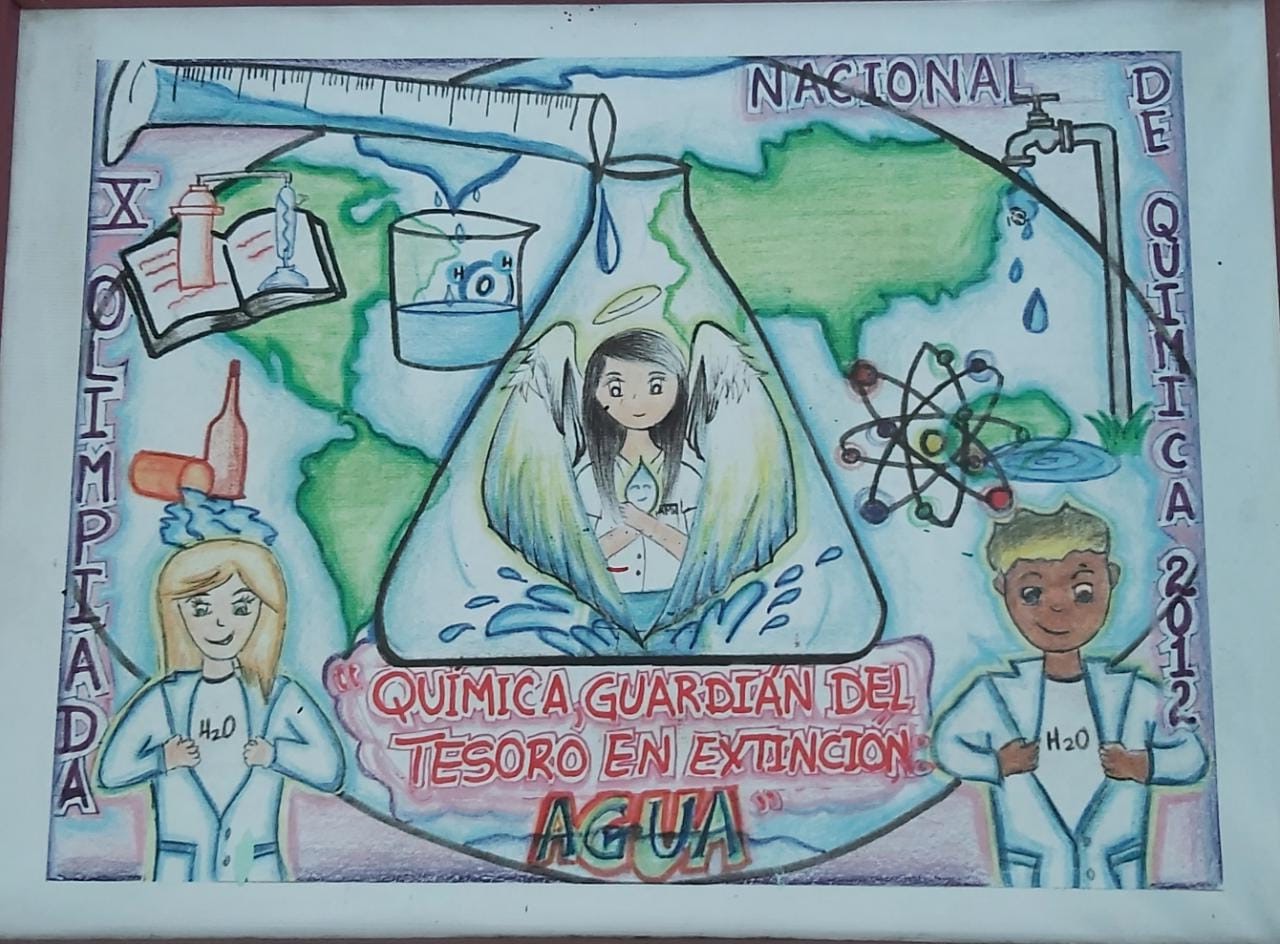 X OLIMPIADA
NACIONAL
DE QUÍMICA 2012
H O H
H2O
H2O
"QUÍMICA, GUARDIÁN DEL
TESORO EN EXTINCIÓN:
AGUA"